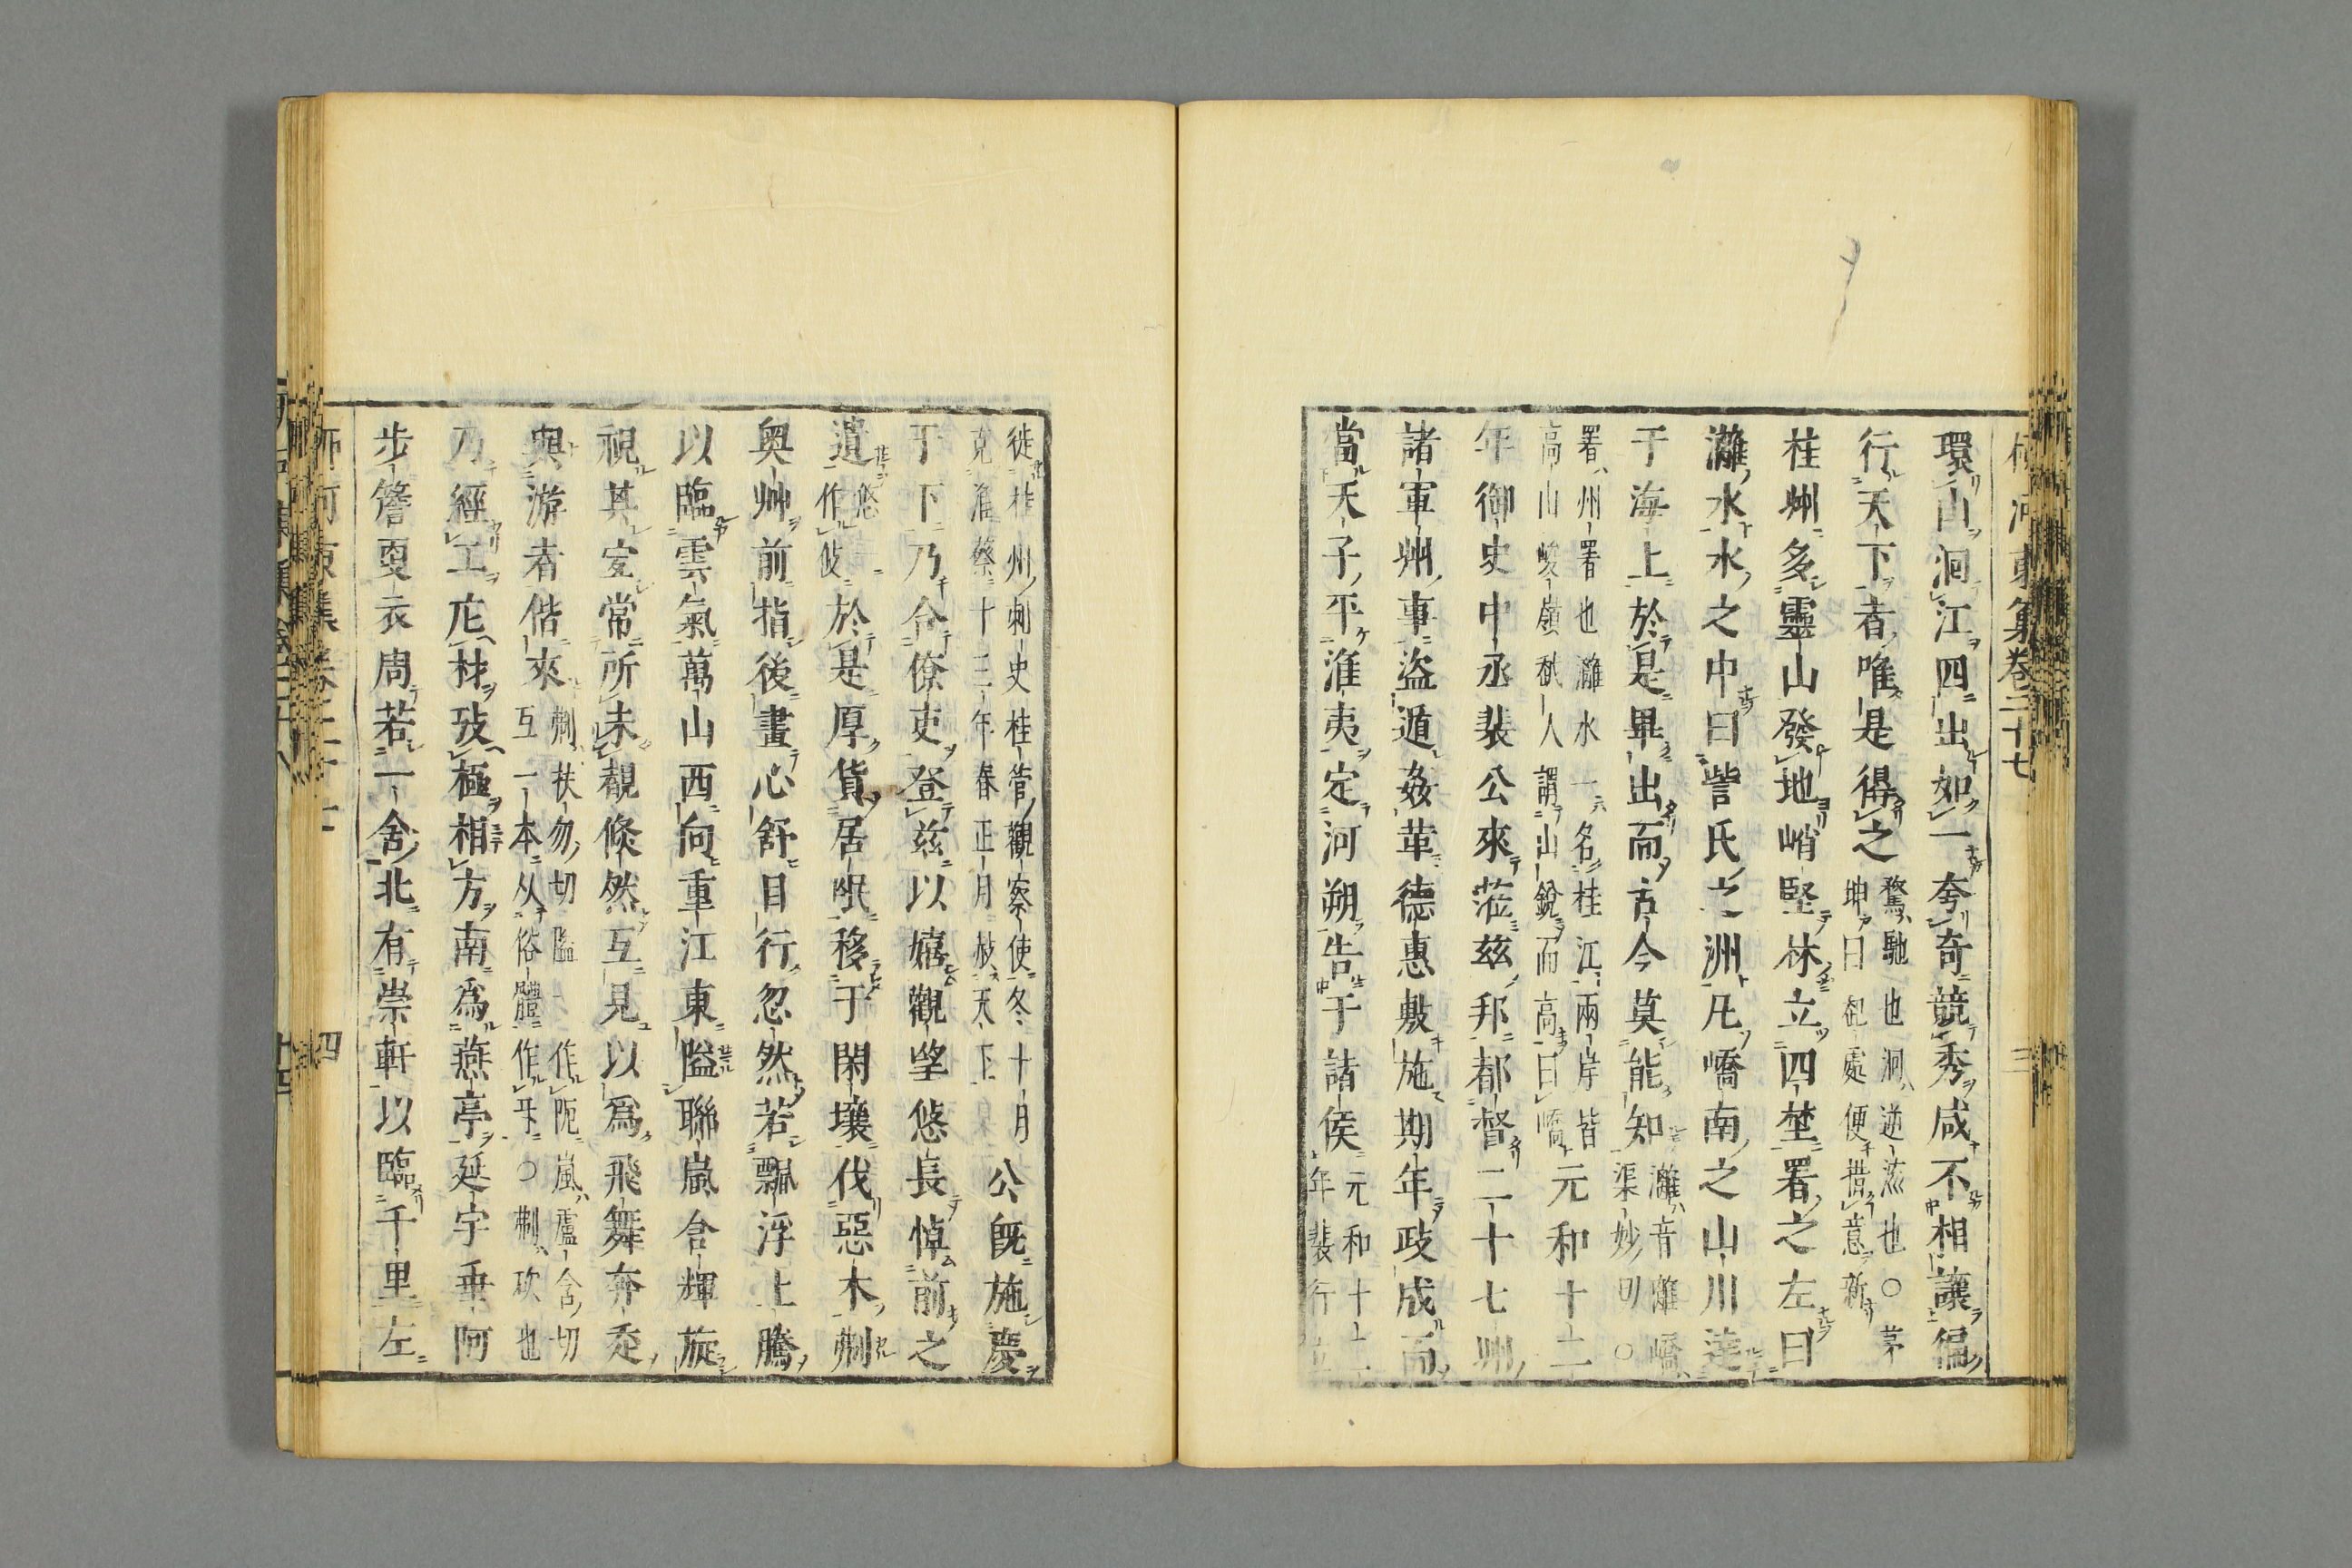 柳河東集卷二十七 三
環山洄江四出如一夸奇競秀咸不相讓徧
行天下者唯是得之騖馳也洄逆流也○茅
坤曰起處便措意新
桂州多靈山發地峭竪林立四埜署之左曰
灕水水之中曰訾氏之洲凡嶠南之山川達
于海上於是畢出而古今莫能知灕音離嶠
渠妙切○
署州署也灕水一名桂江兩岸皆
高山峻嶺秋人謂山銳而高曰嶠元和十二
年御史中丞裴公來蒞兹邦都督二十七州
諸軍州事盜遁姦革德惠敷施期年政成而
當天子平淮夷定河朔告于諸侯元和十二
年裴行立
徙桂州刺史桂管觀察使冬十月
克淮蔡十三年春正月赦天下公既施慶
于下乃合僚吏登兹以嬉觀望悠長悼前之
遺悠
作攸於是厚貨居氓移于閑壤伐惡木刜
奧草前指後畫心舒目行忽然若飄浮上騰
以臨雲氣萬山西向重江東隘聯嵐含輝旋
視其宜常所未覩倏然互見以爲飛舞奔走
與游者偕來刜扶勿切隘一作阨嵐盧含切
互一本从俗體作㸦○刜砍也
乃經工庀材攷極相方南爲燕亭延宇垂阿
步簷更衣周若一舍北有崇軒以臨千里左
四